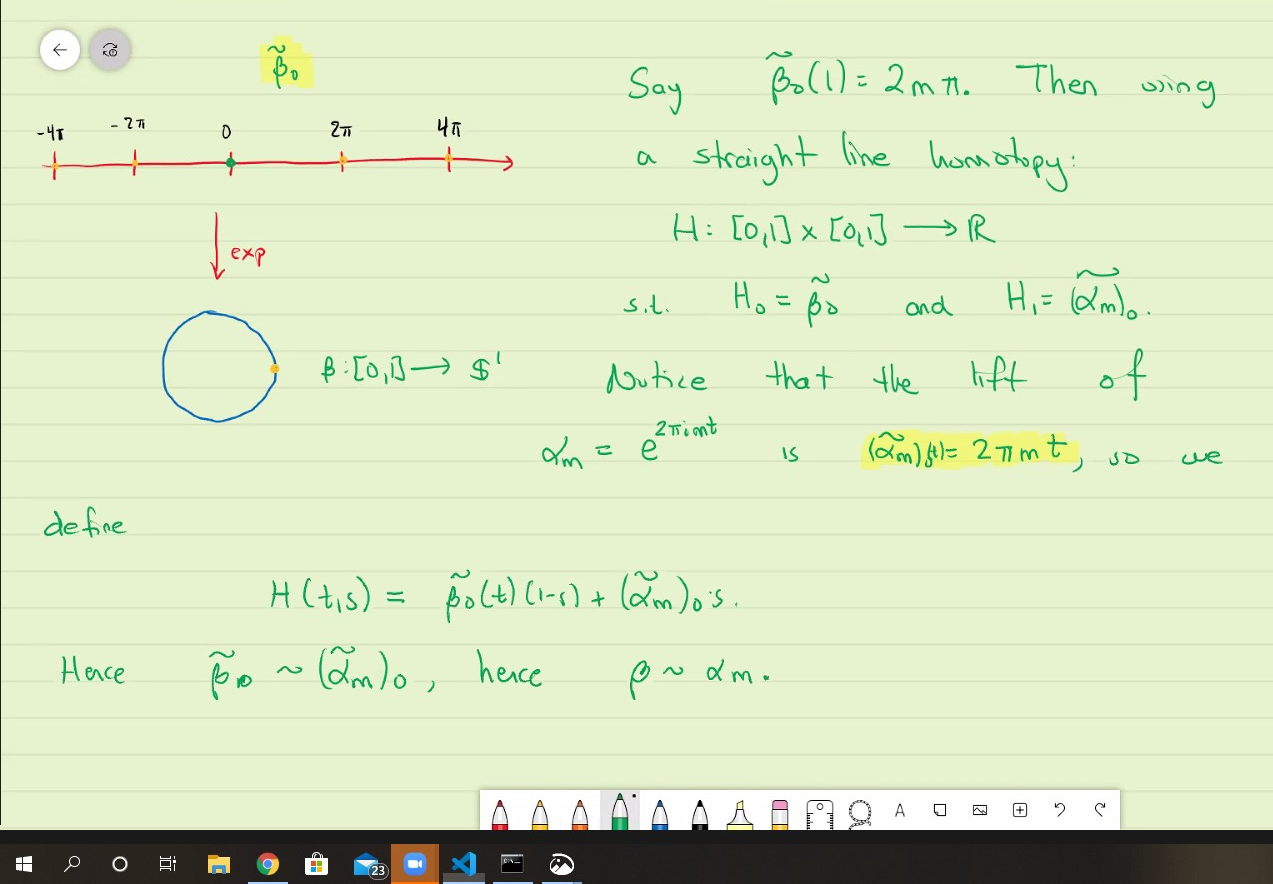 β̃₀
-4π -2π 0 2π 4π
exp
β:[0,1]⟶ $'
Say β̃₀(1) = 2mπ. Then using
a straight line homotopy:
H: [0,1] × [0,1] ⟶ ℝ
s.t. H₀ = β̃₀ and H₁ = (α̃ₘ)₀.
Notice that the lift of
αₘ = e^{2πimt} is (α̃ₘ)₀(t) = 2πmt, so we
define
H(t,s) = β̃₀(t)(1-s) + (α̃ₘ)₀·s.
Hence β̃₀ ~ (α̃ₘ)₀, hence β ~ αₘ.
A
23